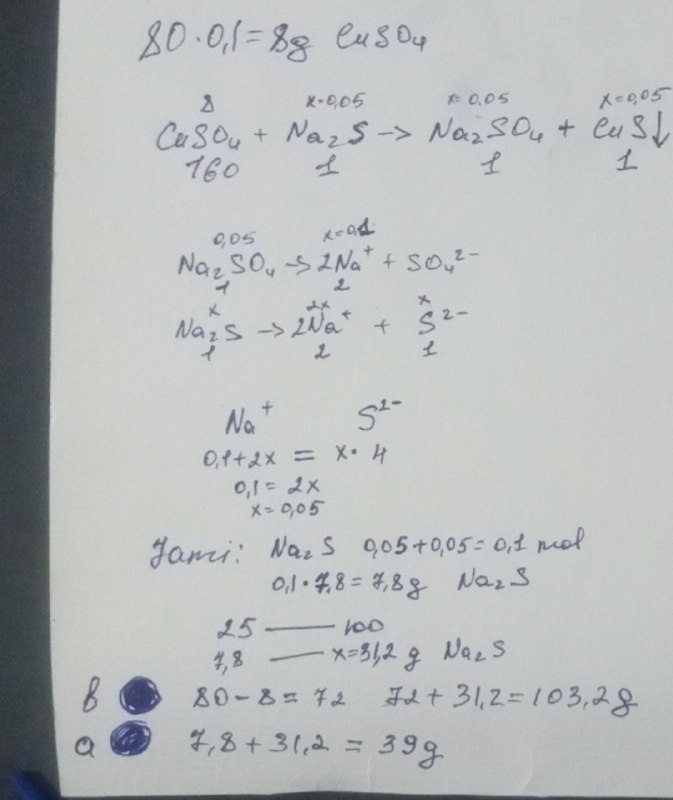 80·0,1=8g CuSO₄
8 x=0,05 x=0,05 x=0,05
CuSO₄ + Na₂S -> Na₂SO₄ + CuS↓
160 1 1 1
0,05 x=0,1
Na₂SO₄ -> 2Na⁺ + SO₄²⁻
1 2
x 2x x
Na₂S -> 2Na⁺ + S²⁻
1 2 1
Na⁺ S²⁻
0,1+2x = x·4
0,1=2x
x=0,05
Jami: Na₂S 0,05+0,05=0,1 mol
0,1·7,8=7,8g Na₂S
25 —— 100
7,8 —— x=31,2 g Na₂S
b 80-8=72 72+31,2=103,2g
a 7,8+31,2=39g